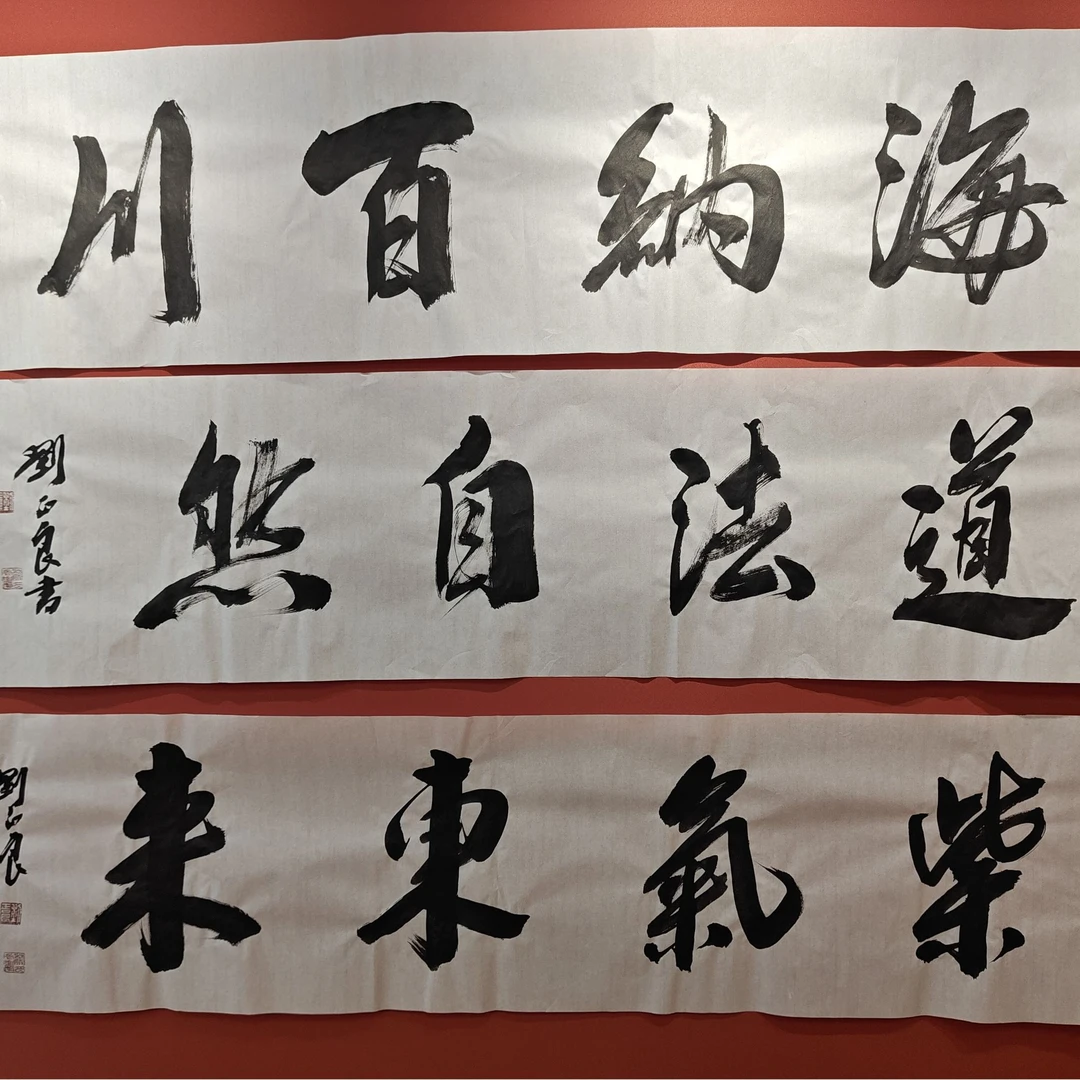 海納百川
道法自然
劉正良書
紫氣東来
劉正良